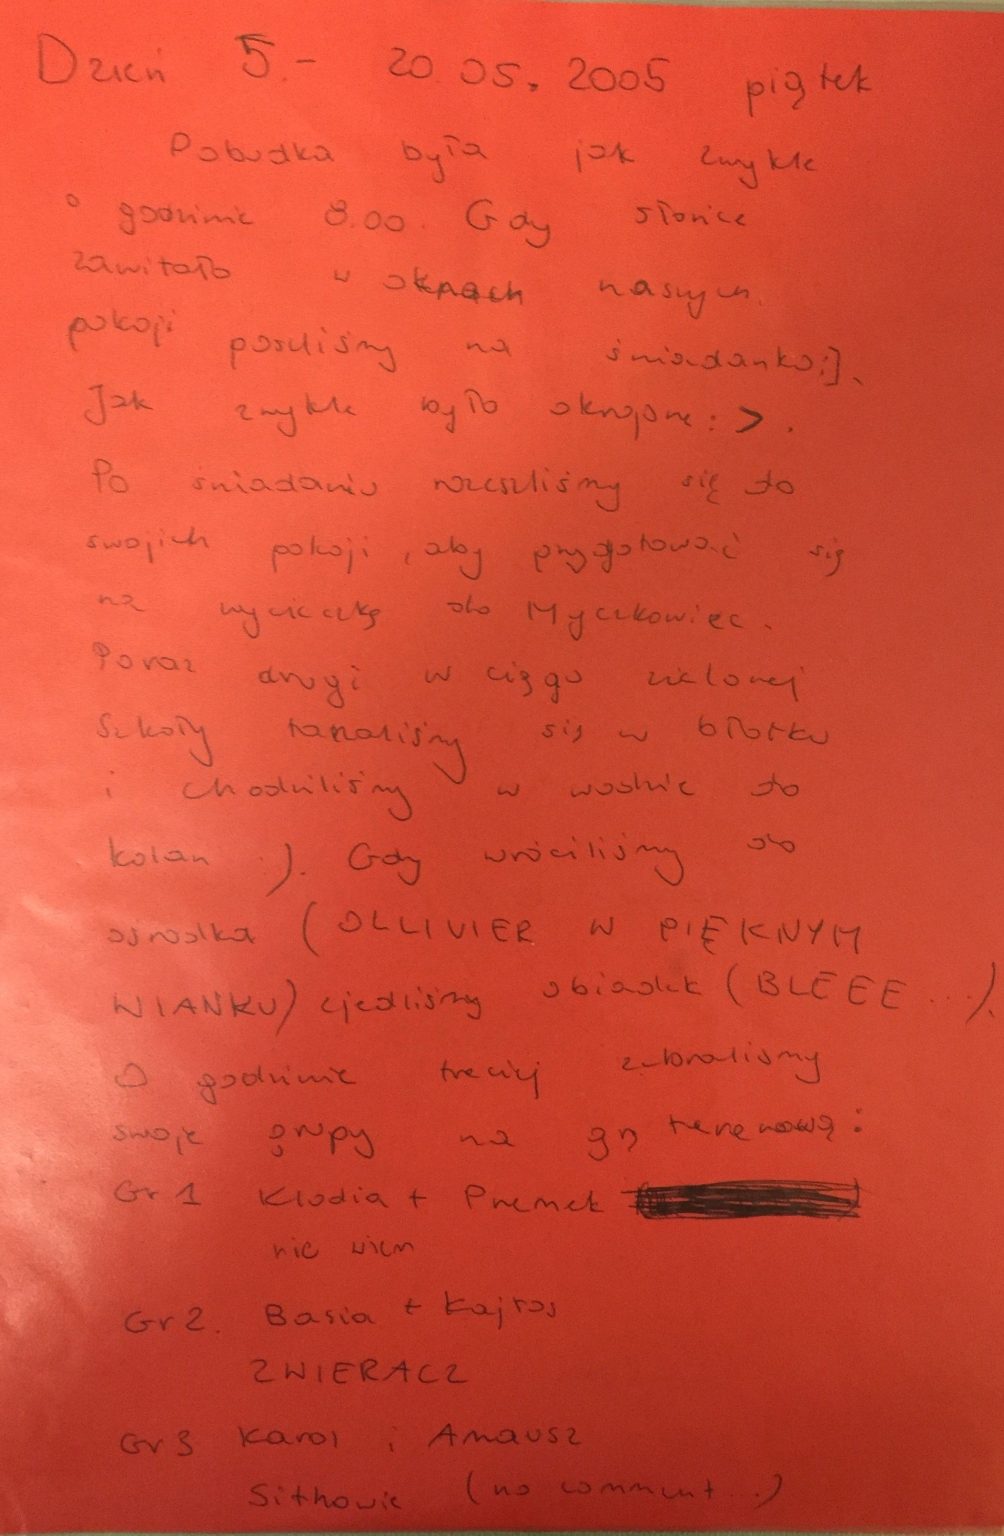 Dzień 5.- 20.05.2005 piątek
Pobudka była jak zwykle
o godzinie 8.00. Gdy słońce
zawitało w oknach naszych
pokoji poszliśmy na śniadanko:].
Jak zwykle było okropne :>.
Po śniadaniu rozeszliśmy się do
swojich pokoji, aby przygotować się
na wycieczkę do Myczkowiec.
Poraz drugi w ciągu zielonej
szkoły taplaliśmy się w błotku
i chodziliśmy w wodzie do
kolan :). Gdy wróciliśmy do
ośrodka (OLLIVIER W PIĘKNYM
WIANKU) zjedliśmy obiadek (BLEEE...).
O godzinie trzeciej zebraliśmy
swoje grupy na grę terenową:
Gr 1 Klodia + Przemek
nie wiem
Gr 2. Basia + Kajtos
ZWIERACZ
Gr 3 Karol i Amausz
Sithowie (no comment...)